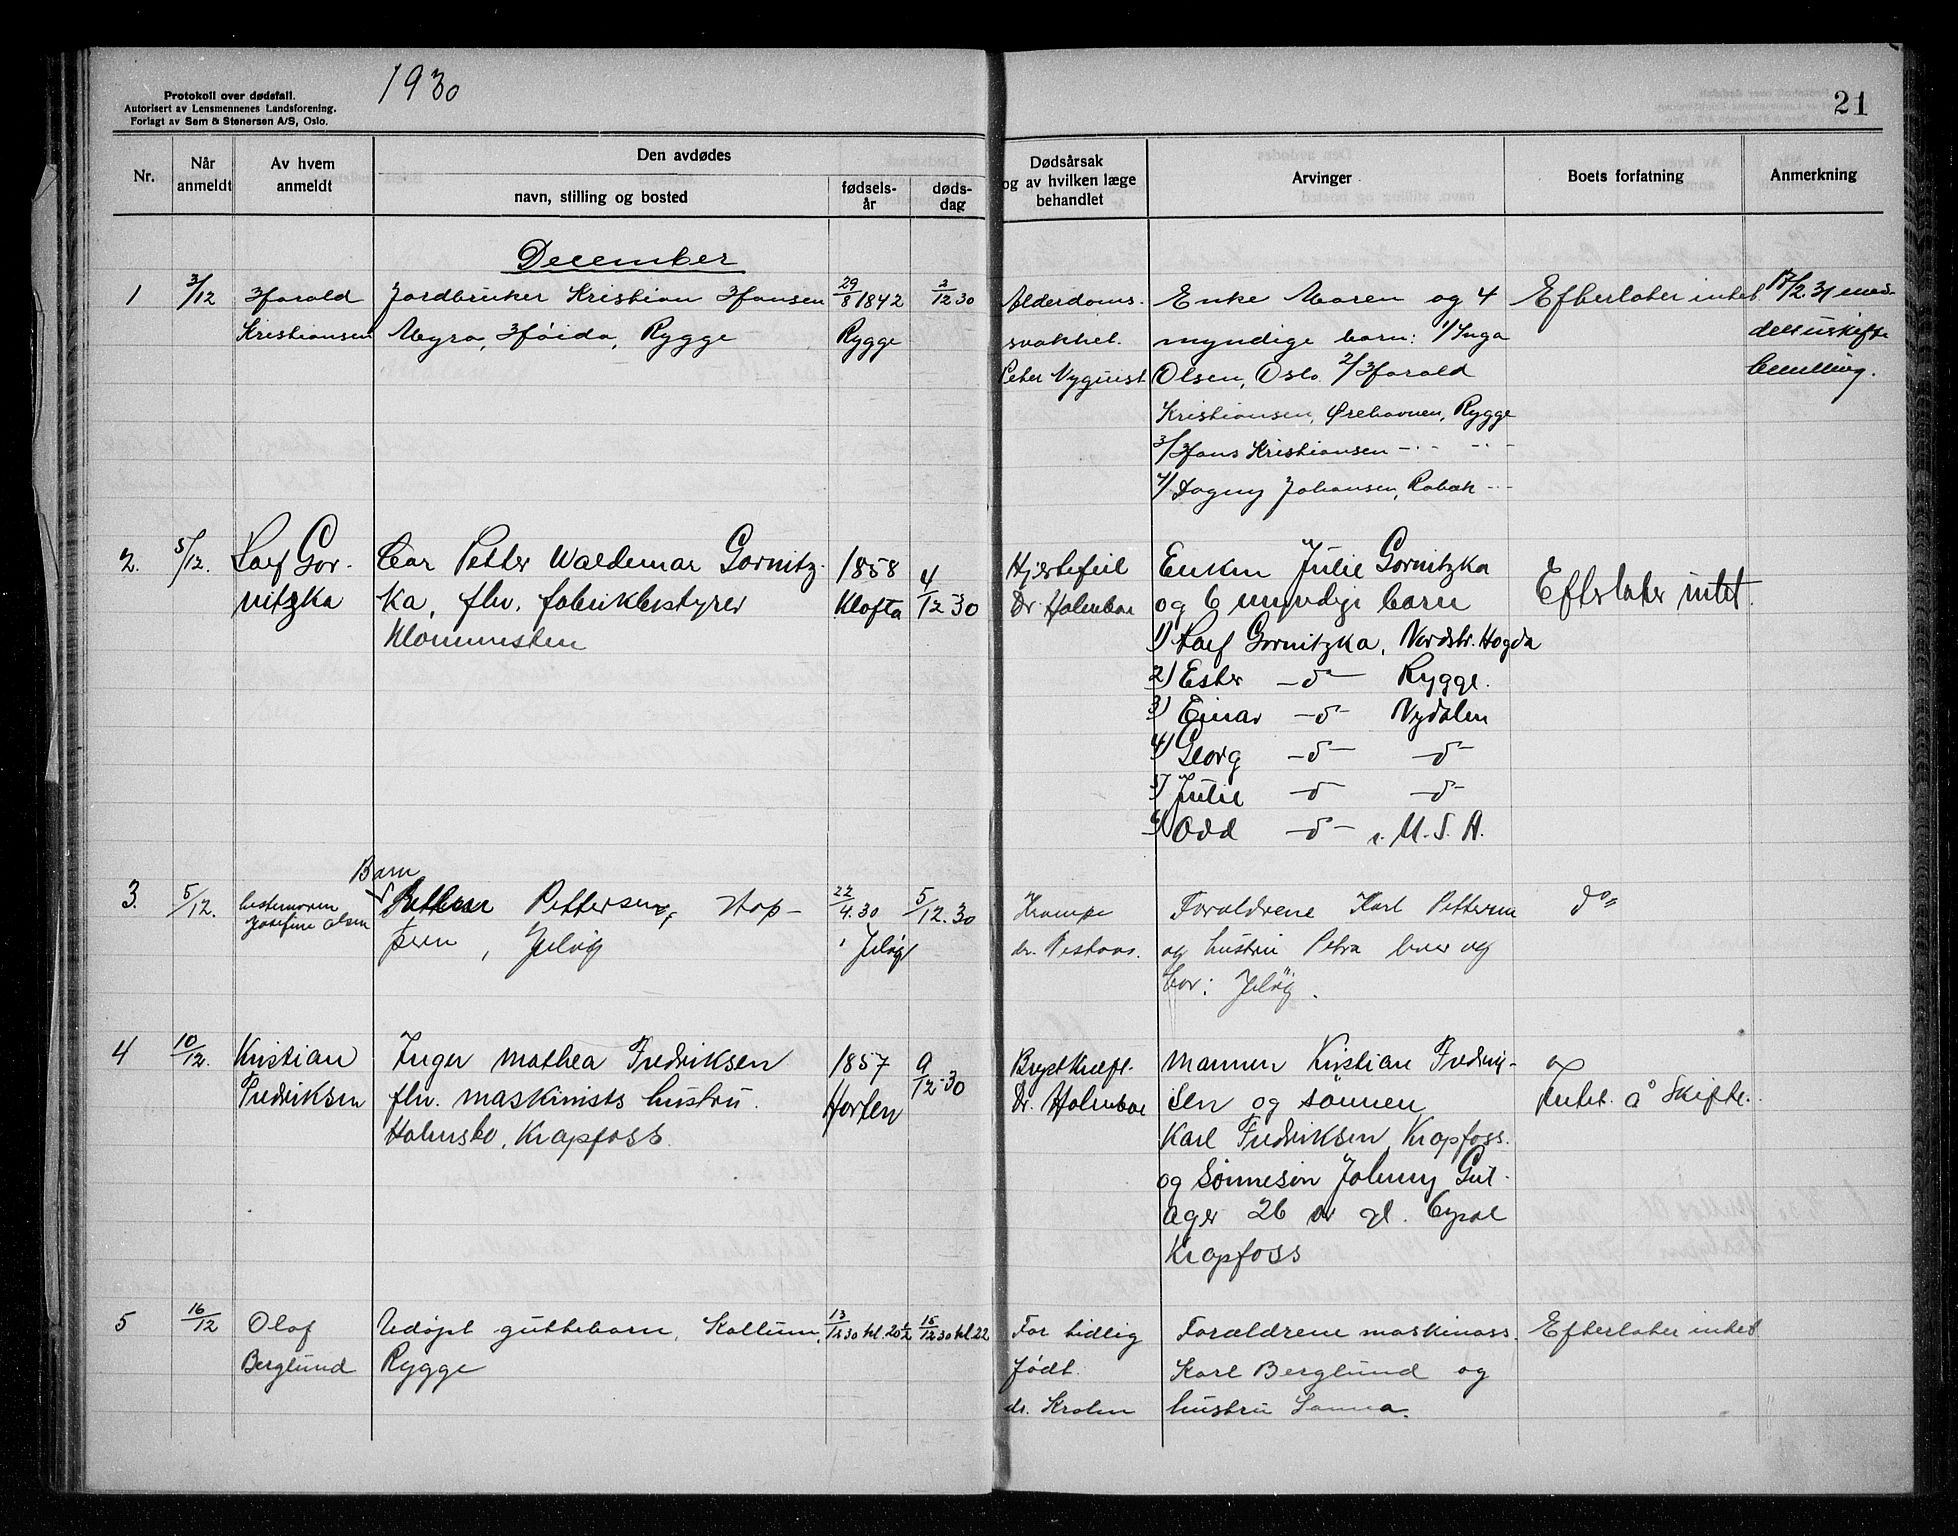 1930
Protokoll over dødsfall.
Autorisert av Lensmennenes Landsforening.
Forlagt av Sem & Stenersen A/S, Oslo.
21
Nr.
Når anmeldt
Av hvem anmeldt
Den avdødes
navn, stilling og bosted
fødsels-år
døds-dag
Dødsårsak og av hvilken læge behandlet
Arvinger
Boets forfatning
Anmerkning
December
1
3/12
Harald
Kristiansen
Jordbruker Kristian Hansen
Myra, Höida, Rygge
29/8 1842
Rygge
2/12 30
Alderdoms-
svakhet.
Peter Nyquist
Enke Maren og 4
myndige barn: 1/ Inga
Olsen, Oslo 2/ Harald
Kristiansen, Ørehavnen, Rygge
3/ Hans Kristiansen -"- -"-
4/ Dagny Johansen, Rabæk -"-
Efterlater intet
17/2 31 med-
delt uskifte
bevilling.
2.
5/12.
Leif Gor-
nitzka
Car Petter Waldemar Gornitz-
ka, fhv. fabrikbestyrer
1858
Kløfta
4/12-30
Hjertefeil
Dr. Holmboe
Enken Julie Gornitzka
og 6 myndige barn
1) Leif Gornitzka, Nordstr. Høgda
2) Ester -d- Rygge.
3) Einar -d- Nydalen
4) Georg -d- -d-
5) Julie -d- -d-
6) Odd -d- i U.S.A.
Efterlater intet.
3.
5/12.
bestemoren
Josefine Olsen
Barn
Pettersen, Hop-
pern, Jeløy
22/4.30
i Jeløy
5/12.30
Krampe
dr.
Foreldrene Karl Pettersen
og hustru Petra lever og
bor i Jeløy.
do
4
10/12.
Kristian
Fredriksen
Inger Mathea Fredriksen
fhv. maskinists hustru.
Holmsbo, Krapfoss.
1857
Horten
9/12-30
Brystkreft.
Dr. Holmboe
Mannen Kristian Fredrik-
sen og sönnen
Karl Fredriksen, Krapfoss.
og sönnesön Johnny Gut-
ager 26 år gl.
Krapfoss
Intet å skifte.
5
16/12
Olaf
Berglund
Udøpt guttebarn, Kallum,
Rygge
13/12 30 kl. 20½
15/12 30 kl. 22
For tidlig
født.
dr. Krohn
Forældrene maskinass.
Karl Berglund og
hustru Sanna.
Efterlater intet